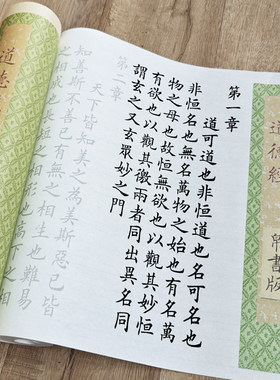 道德經 帛書版
第一章
道可道也非恒道也名可名也
非恒名也無名萬物之始也有名萬
物之母也故恒無欲也以觀其妙恒
有欲也以觀其徼兩者同出異名同
謂玄之又玄眾妙之門
第二章
天下皆知美之為美斯惡已皆
知善斯不善已有無之相生也難易
之相成也長短之相形也高下
道德